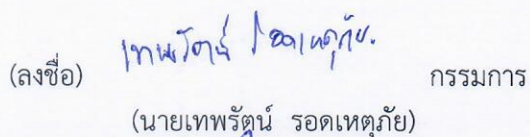 (ลงชื่อ) เทพรัตน์ รอดเหตุภัย. กรรมการ
(นายเทพรัตน์ รอดเหตุภัย)